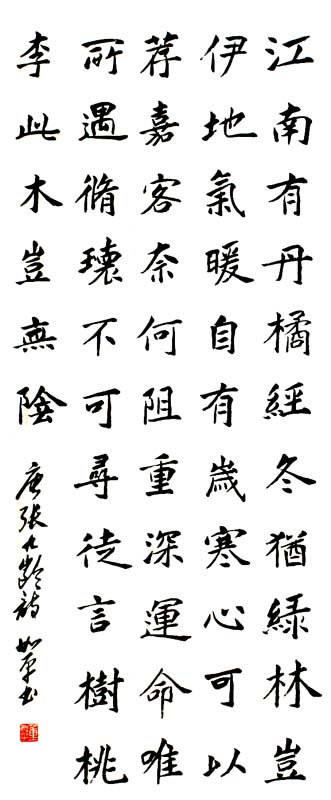 江南有丹橘經冬猶綠林豈
伊地氣暖自有歲寒心可以
荐嘉客奈何阻重深運命唯
所遇循環不可尋徒言樹桃
李此木豈無陰
唐張九齡詩 书